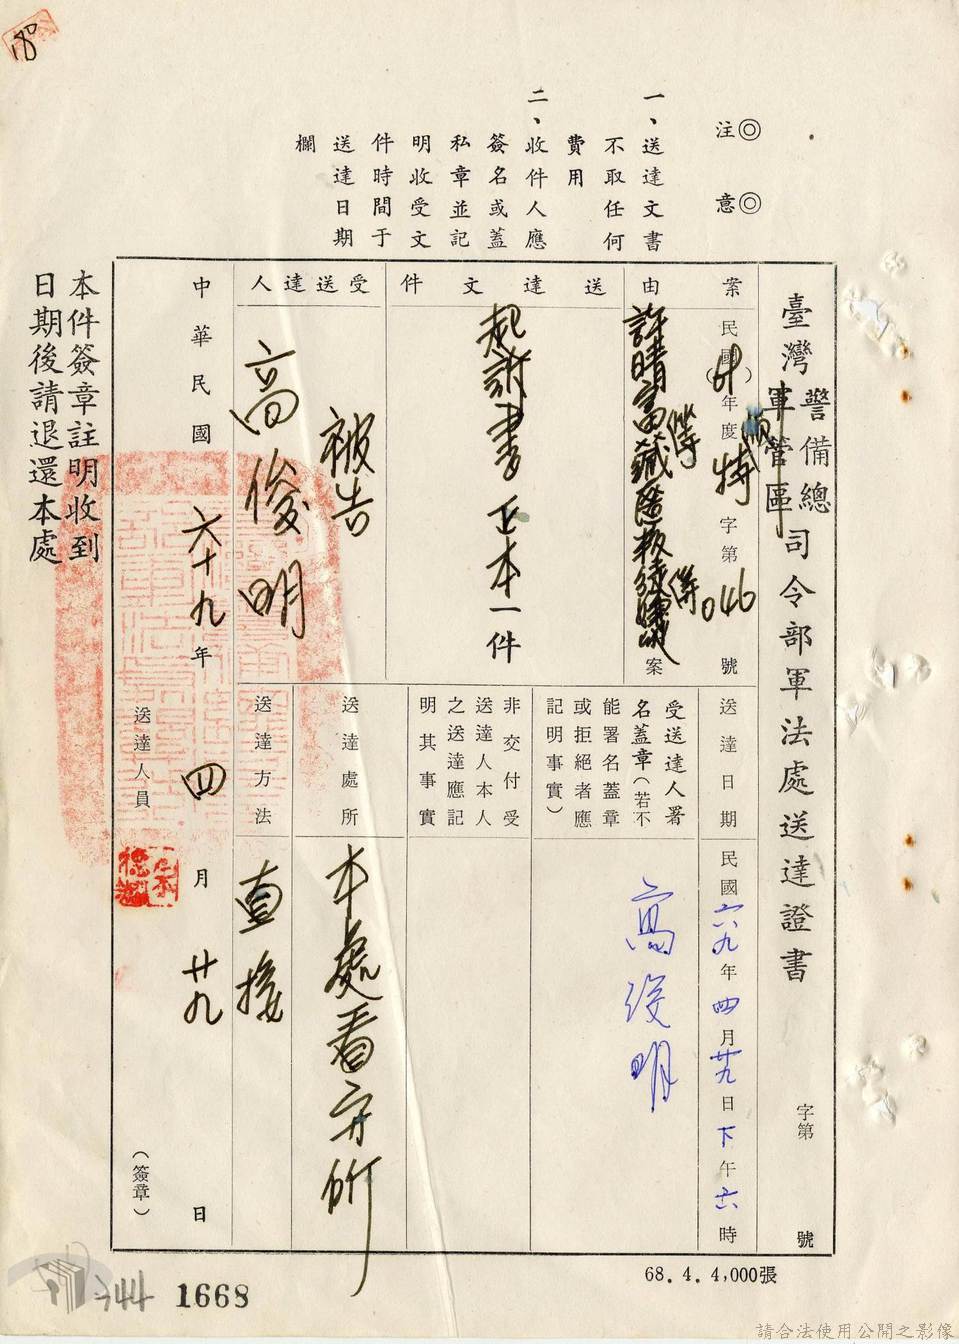 180
◎注意◎
一、送達文書
不取任何
費用
二、收件人應
簽名或蓋
私章並記
明收受文
件時間于
送達日期
欄
臺灣警備總軍管區司令部軍法處送達證書
字第 號
案由
民國( )年度特字第046號
許晴富等藏匿叛徒等案
送達文件
起訴書正本一件
受送達人
被告
高俊明
送達日期
民國六九年四月廿九日下午六時
受送達人署
名蓋章(若不
能署名蓋章
或拒絕者應
記明事實)
高俊明
非交付受
送達人本人
之送達應記
明其事實
送達處所
本處看守所
送達方法
直接
中華民國六十九年四月廿九日
送達人員
(簽章)
本件簽章註明收到
日期後請退還本處
68.4.4,000張
344
1668
請合法使用公開之影像